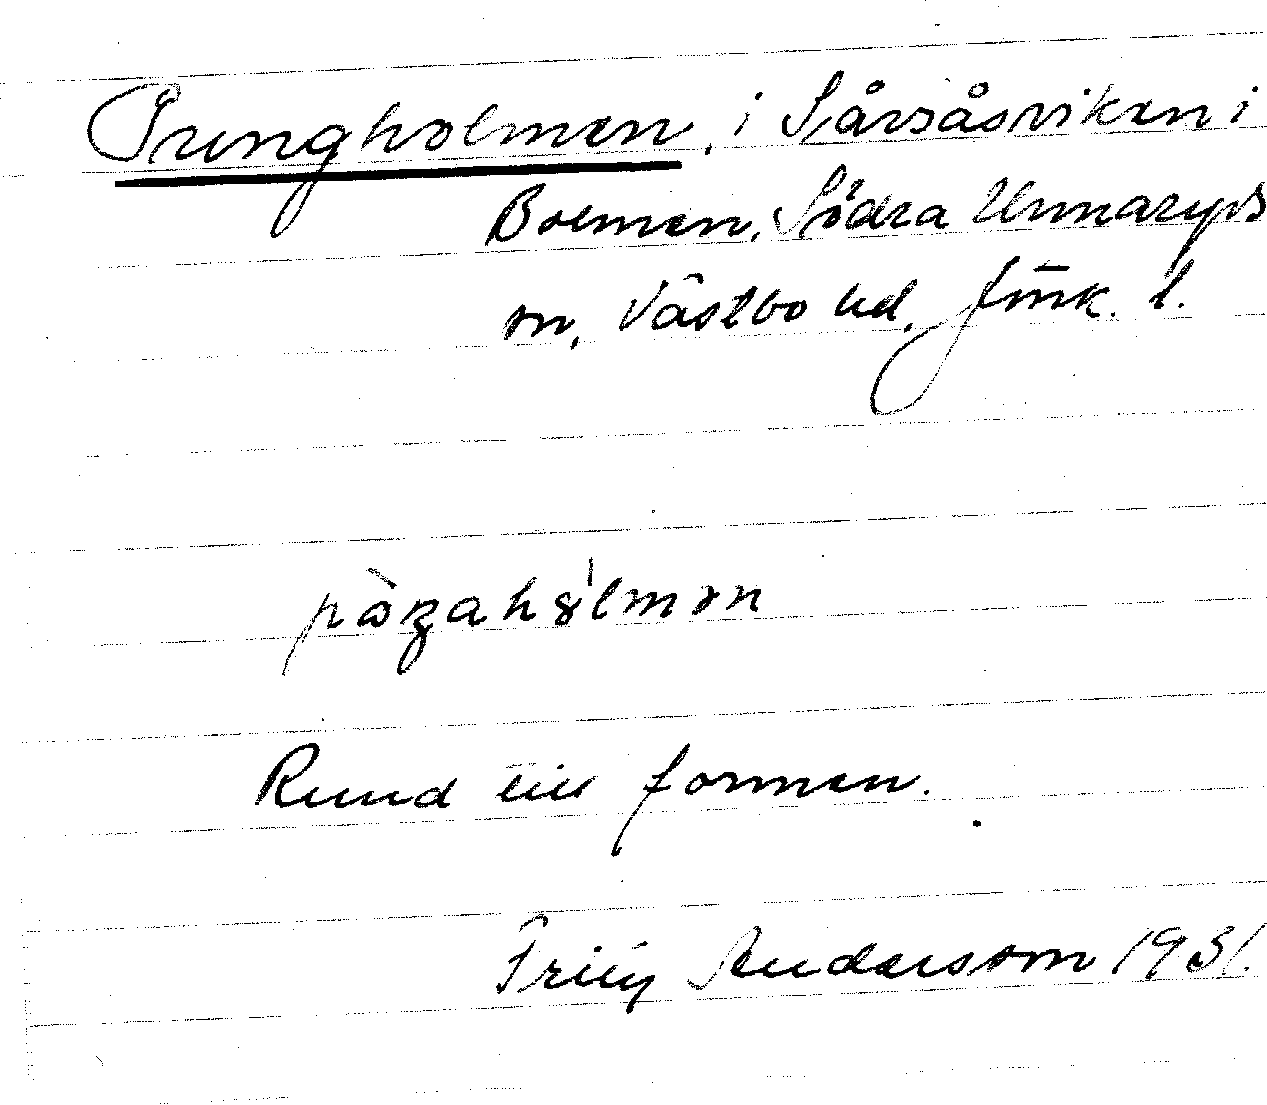 Pungholmen, i Sårsåsviken i
Bolmen, Södra Unnaryds
sn, Västbo hd. Jönk. l.
Rund till formen.
Fritz Andersson 1931.